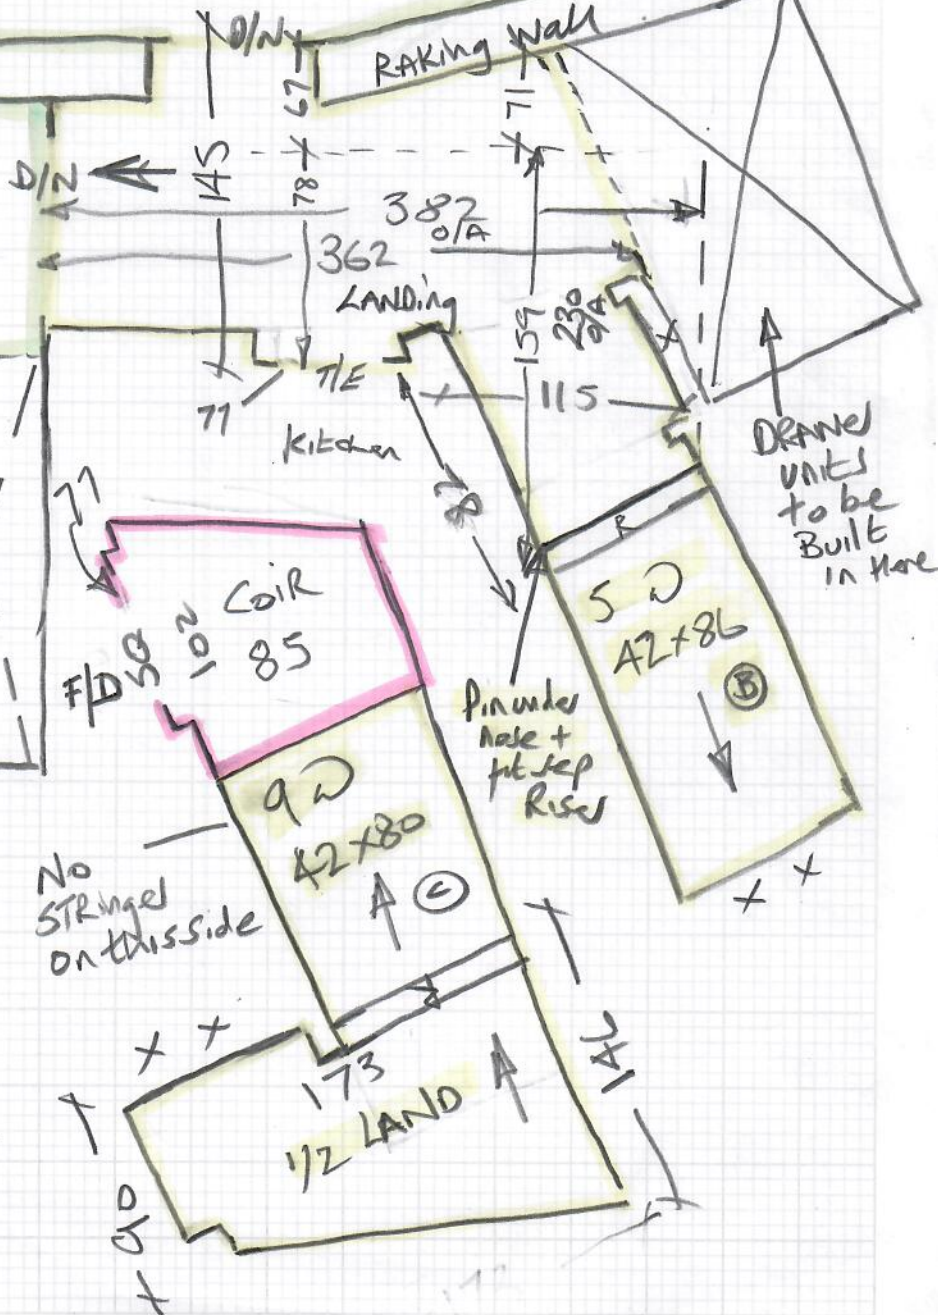 D/Ny
RAKing Wall
67
71
D/2
145
78
382
O/A
362
LANDing
159
230
O/A
T/E
115
77
Kitchen
87
DRAWER
units
to be
Built
in Here
77
R
COIR
85
50
102
F/D
5 W
42x86
B
Pin under
nose +
fit step
Riser
9 W
42x80
C
No
STRinger
on this side
146
173
1/2 LAND
90